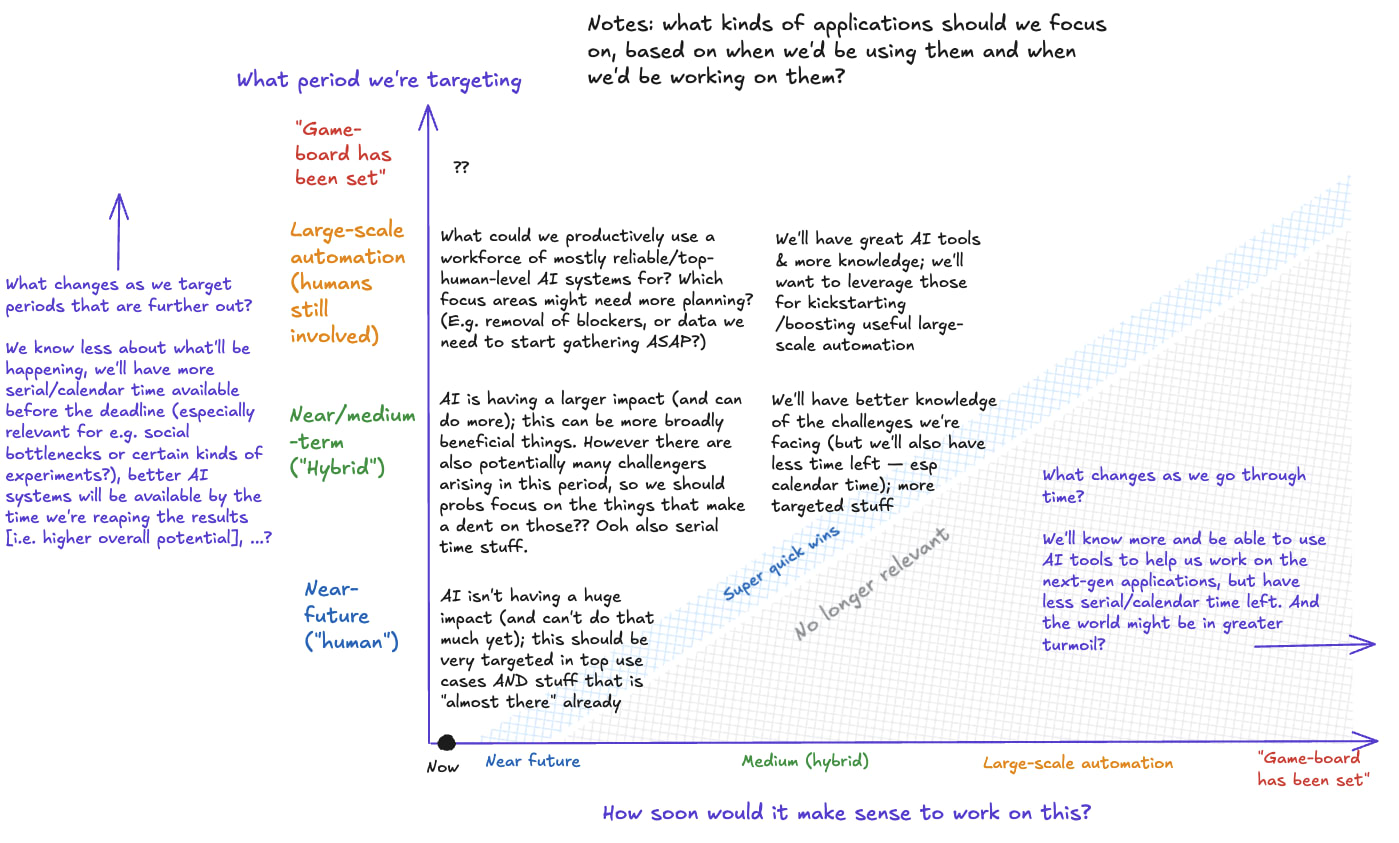 Notes: what kinds of applications should we focus
on, based on when we'd be using them and when
we'd be working on them?
What period we're targeting
"Game-
board has
been set"
??
Large-scale
automation
(humans
still
involved)
What could we productively use a
workforce of mostly reliable/top-
human-level AI systems for? Which
focus areas might need more planning?
(E.g. removal of blockers, or data we
need to start gathering ASAP?)
We'll have great AI tools
& more knowledge; we'll
want to leverage those
for kickstarting
/boosting useful large-
scale automation
What changes as we target
periods that are further out?
We know less about what'll be
happening, we'll have more
serial/calendar time available
before the deadline (especially
relevant for e.g. social
bottlenecks or certain kinds of
experiments?), better AI
systems will be available by the
time we're reaping the results
[i.e. higher overall potential], ...?
Near/medium
-term
("Hybrid")
AI is having a larger impact (and can
do more); this can be more broadly
beneficial things. However there are
also potentially many challengers
arising in this period, so we should
probs focus on the things that make
a dent on those?? Ooh also serial
time stuff.
We'll have better knowledge
of the challenges we're
facing (but we'll also have
less time left — esp
calendar time); more
targeted stuff
What changes as we go through
time?
We'll know more and be able to use
AI tools to help us work on the
next-gen applications, but have
less serial/calendar time left. And
the world might be in greater
turmoil?
Super quick wins
No longer relevant
Near-
future
("human")
AI isn't having a huge
impact (and can't do that
much yet); this should be
very targeted in top use
cases AND stuff that is
"almost there" already
Now
Near future
Medium (hybrid)
Large-scale automation
"Game-board
has been set"
How soon would it make sense to work on this?